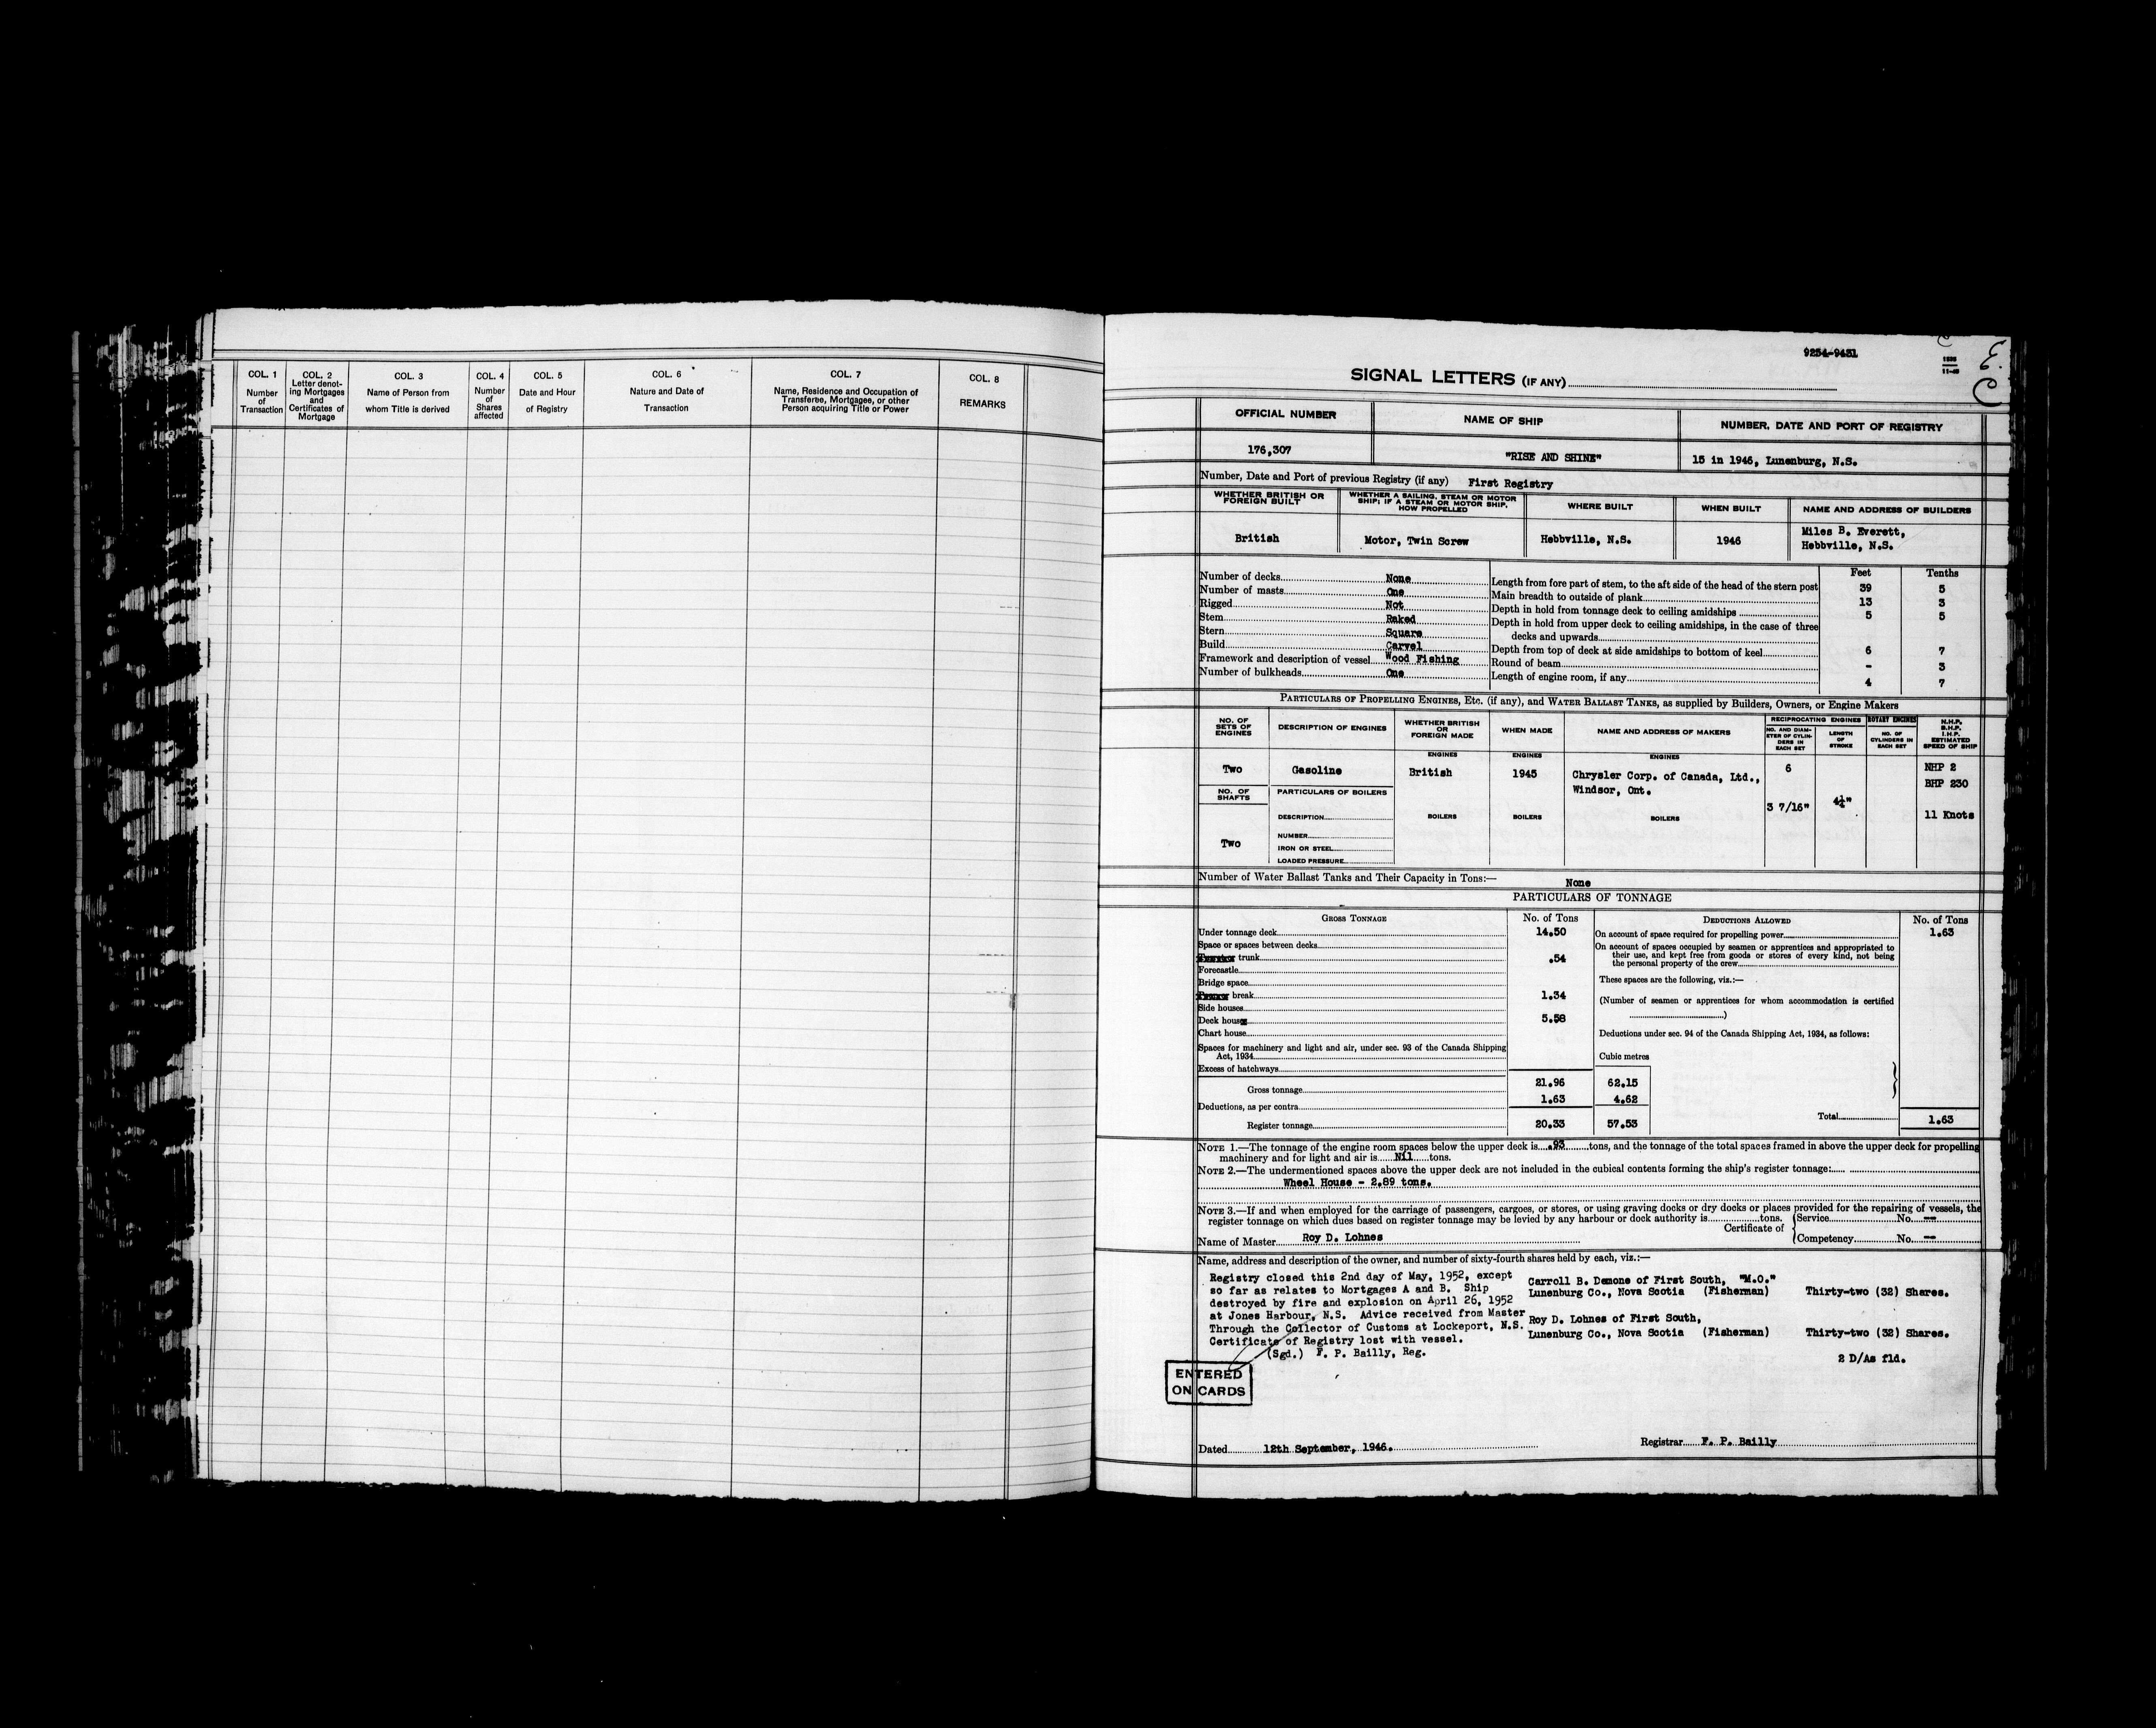 COL. 1
Number
of
Transaction
COL. 2
Letter denot-
ing Mortgages
and
Certificates of
Mortgage
COL. 3
Name of Person from
whom Title is derived
COL. 4
Number
of
Shares
affected
COL. 5
Date and Hour
of Registry
COL. 6
Nature and Date of
Transaction
COL. 7
Name, Residence and Occupation of
Transferee, Mortgagee, or other
Person acquiring Title or Power
COL. 8
REMARKS
9254-9431
SIGNAL LETTERS (IF ANY)
OFFICIAL NUMBER
NAME OF SHIP
NUMBER, DATE AND PORT OF REGISTRY
176,307
"RISE AND SHINE"
15 in 1946, Lunenburg, N.S.
Number, Date and Port of previous Registry (if any) First Registry
WHETHER BRITISH OR
FOREIGN BUILT
WHETHER A SAILING, STEAM OR MOTOR
SHIP; IF A STEAM OR MOTOR SHIP,
HOW PROPELLED
WHERE BUILT
WHEN BUILT
NAME AND ADDRESS OF BUILDERS
British
Motor, Twin Screw
Hebbville, N.S.
1946
Miles B. Everett,
Hebbville, N.S.
Feet Tenths
Number of decks None
Number of masts One
Rigged Not
Stem Raked
Stern Square
Build Carvel
Framework and description of vessel Wood Fishing
Number of bulkheads One
Length from fore part of stem, to the aft side of the head of the stern post 39 5
Main breadth to outside of plank 13 3
Depth in hold from tonnage deck to ceiling amidships 5 5
Depth in hold from upper deck to ceiling amidships, in the case of three
decks and upwards
Depth from top of deck at side amidships to bottom of keel 6 7
Round of beam - 3
Length of engine room, if any 4 7
PARTICULARS OF PROPELLING ENGINES, ETC. (if any), and WATER BALLAST TANKS, as supplied by Builders, Owners, or Engine Makers
NO. OF
SETS OF
ENGINES
DESCRIPTION OF ENGINES
WHETHER BRITISH
OR
FOREIGN MADE
WHEN MADE
NAME AND ADDRESS OF MAKERS
RECIPROCATING ENGINES
NO. AND DIAM-
ETER OF CYLIN-
DERS IN
EACH SET
LENGTH
OF
STROKE
ROTARY ENGINES
NO. OF
CYLINDERS IN
EACH SET
N.H.P.
B.H.P.
I.H.P.
ESTIMATED
SPEED OF SHIP
ENGINES
ENGINES
ENGINES
Two
Gasoline
British
1945
Chrysler Corp. of Canada, Ltd.,
Windsor, Ont.
6
3 7/16"
4¼"
NHP 2
BHP 230
11 Knots
NO. OF
SHAFTS
PARTICULARS OF BOILERS
DESCRIPTION
BOILERS
BOILERS
BOILERS
Two
NUMBER
IRON OR STEEL
LOADED PRESSURE
Number of Water Ballast Tanks and Their Capacity in Tons:— None
PARTICULARS OF TONNAGE
GROSS TONNAGE No. of Tons
Under tonnage deck 14.50
Space or spaces between decks
trunk .54
Forecastle
Bridge space
break 1.34
Side houses
Deck house 5.58
Chart house
Spaces for machinery and light and air, under sec. 93 of the Canada Shipping
Act, 1934
Excess of hatchways
Gross tonnage 21.96 62.15
Deductions, as per contra 1.63 4.62
Register tonnage 20.33 57.53
DEDUCTIONS ALLOWED No. of Tons
On account of space required for propelling power 1.63
On account of spaces occupied by seamen or apprentices and appropriated to
their use, and kept free from goods or stores of every kind, not being
the personal property of the crew
These spaces are the following, viz.:—
(Number of seamen or apprentices for whom accommodation is certified
)
Deductions under sec. 94 of the Canada Shipping Act, 1934, as follows:
Cubic metres
Total 1.63
NOTE 1.—The tonnage of the engine room spaces below the upper deck is .93 tons, and the tonnage of the total spaces framed in above the upper deck for propelling
machinery and for light and air is Nil tons.
NOTE 2.—The undermentioned spaces above the upper deck are not included in the cubical contents forming the ship's register tonnage:
Wheel House - 2.89 tons.
NOTE 3.—If and when employed for the carriage of passengers, cargoes, or stores, or using graving docks or dry docks or places provided for the repairing of vessels, the
register tonnage on which dues based on register tonnage may be levied by any harbour or dock authority is tons.
Certificate of
Service No. —
Competency No. —
Name of Master Roy D. Lohnes
Name, address and description of the owner, and number of sixty-fourth shares held by each, viz.:—
Registry closed this 2nd day of May, 1952, except
so far as relates to Mortgages A and B. Ship
destroyed by fire and explosion on April 26, 1952
at Jones Harbour, N.S. Advice received from Master
Through the Collector of Customs at Lockeport, N.S.
Certificate of Registry lost with vessel.
(Sgd.) F. P. Bailly, Reg.
Carroll B. Demone of First South, "M.O."
Lunenburg Co., Nova Scotia (Fisherman) Thirty-two (32) Shares.
Roy D. Lohnes of First South,
Lunenburg Co., Nova Scotia (Fisherman) Thirty-two (32) Shares.
2 D/As fld.
ENTERED
ON CARDS
Dated 12th September, 1946.
Registrar F. P. Bailly